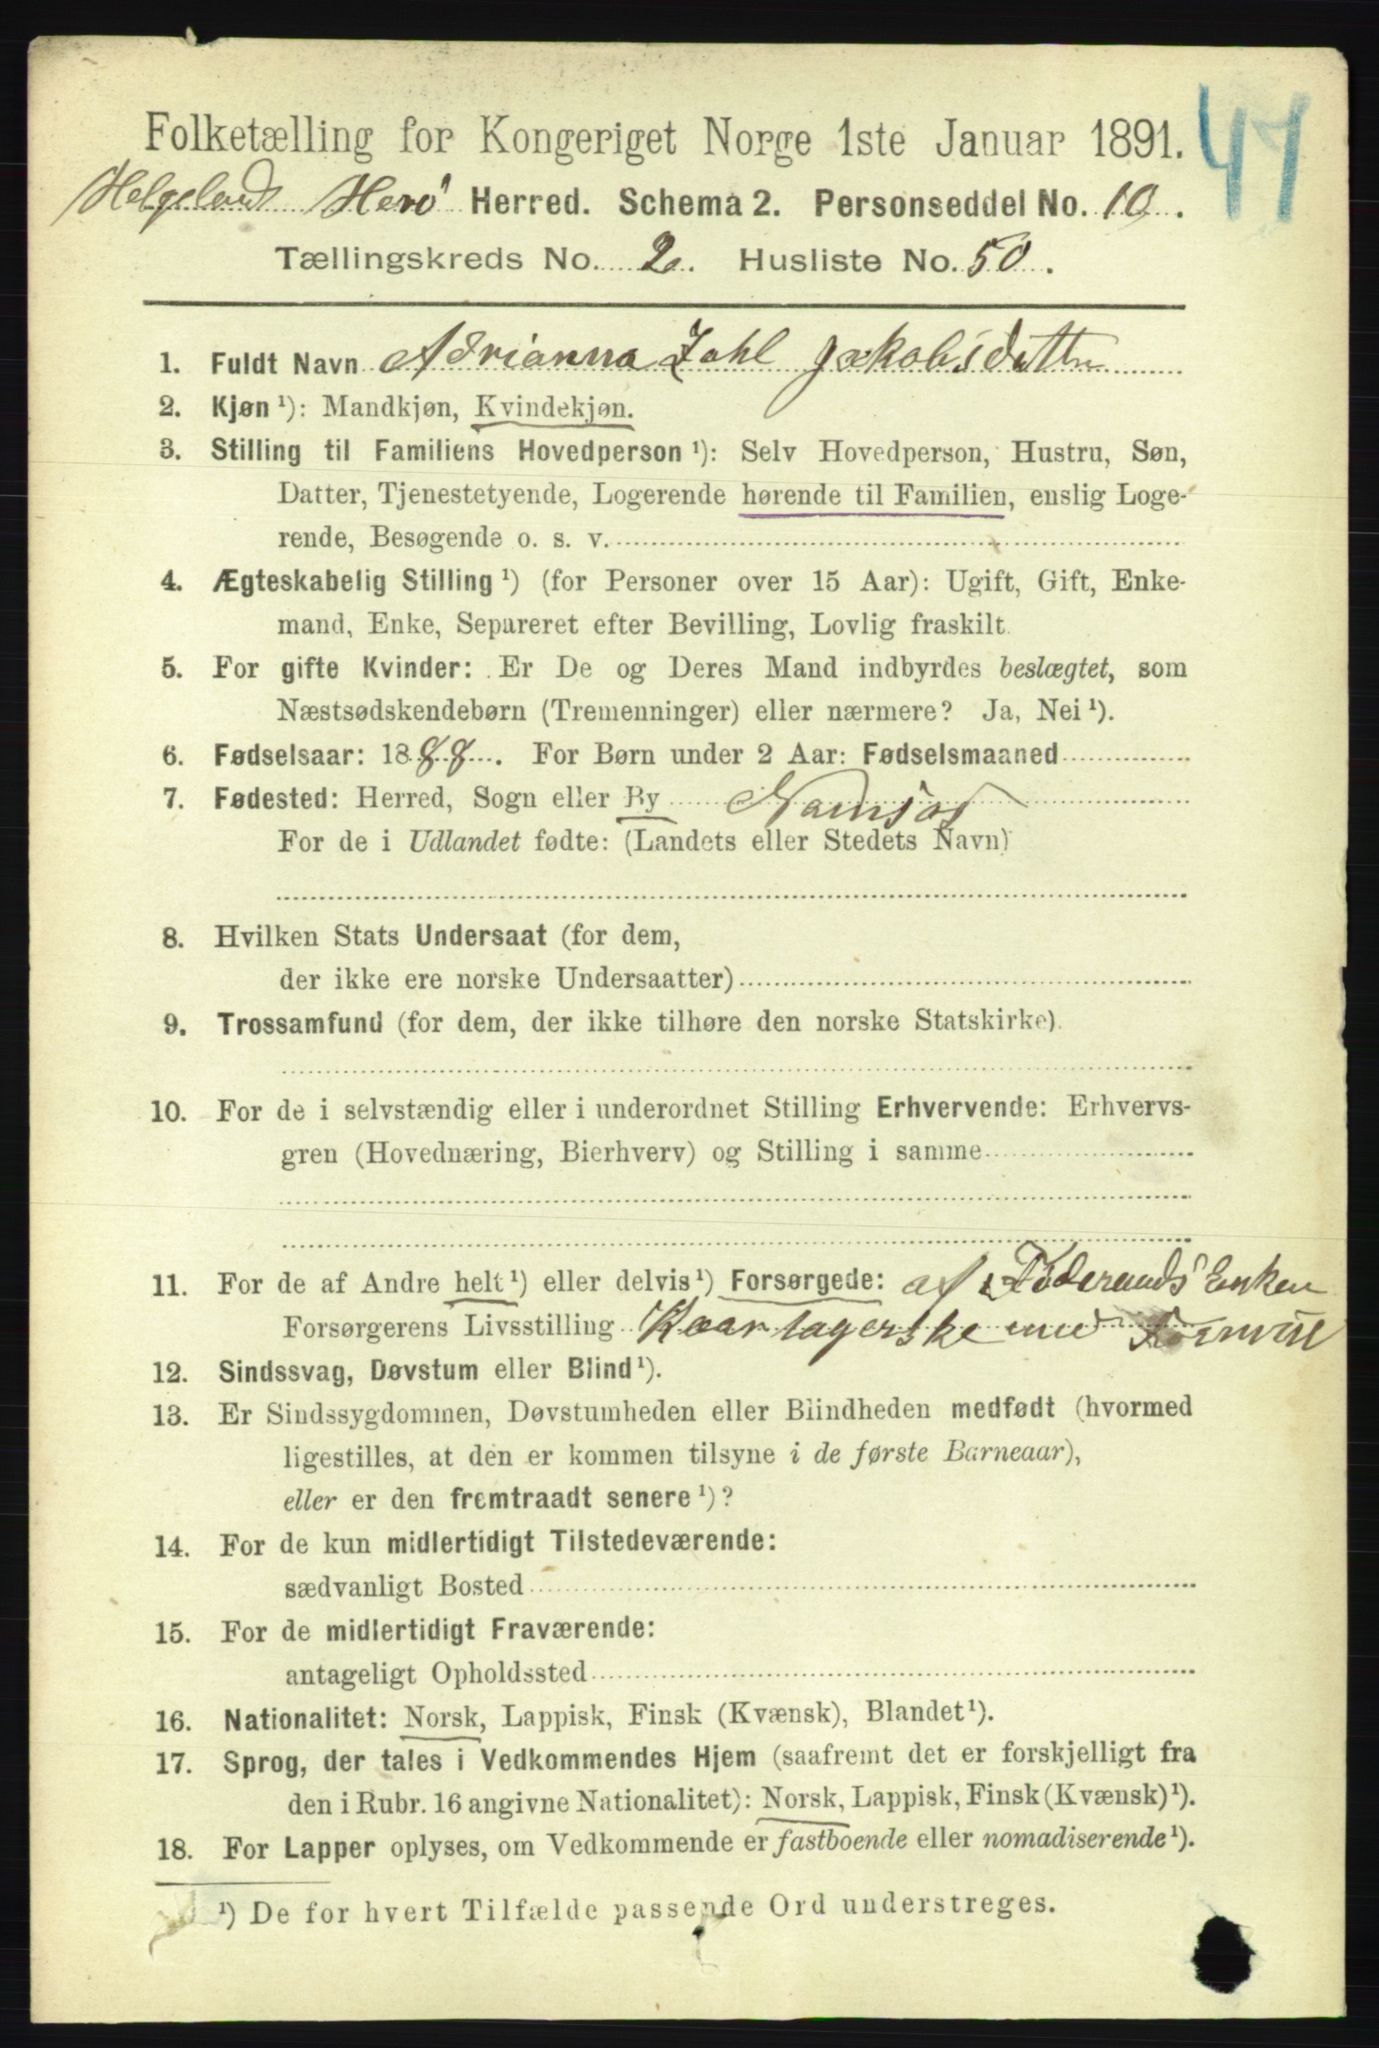 47
Folketælling for Kongeriget Norge 1ste Januar 1891.
Helgeland Herø Herred. Schema 2. Personseddel No. 10.
Tællingskreds No. 2. Husliste No. 50.
1. Fuldt Navn Adrianna Zahl Jakobsdatter
2. Kjøn ¹): Mandkjøn, Kvindekjøn.
3. Stilling til Familiens Hovedperson ¹): Selv Hovedperson, Hustru, Søn,
Datter, Tjenestetyende, Logerende hørende til Familien, enslig Loge-
rende, Besøgende o. s. v.
4. Ægteskabelig Stilling ¹) (for Personer over 15 Aar): Ugift, Gift, Enke-
mand, Enke, Separeret efter Bevilling, Lovlig fraskilt.
5. For gifte Kvinder: Er De og Deres Mand indbyrdes beslægtet, som
Næstsødskendebørn (Tremenninger) eller nærmere? Ja, Nei ¹).
6. Fødselsaar: 1888. For Børn under 2 Aar: Fødselsmaaned
7. Fødested: Herred, Sogn eller By Namsos
For de i Udlandet fødte: (Landets eller Stedets Navn)
8. Hvilken Stats Undersaat (for dem,
der ikke ere norske Undersaatter)
9. Trossamfund (for dem, der ikke tilhøre den norske Statskirke).
10. For de i selvstændig eller i underordnet Stilling Erhvervende: Erhvervs-
gren (Hovednæring, Bierhverv) og Stilling i samme
11. For de af Andre helt ¹) eller delvis ¹) Forsørgede: af Føderaads Enken
Forsørgerens Livsstilling Kaartagerske med
12. Sindssvag, Døvstum eller Blind ¹).
13. Er Sindssygdommen, Døvstumheden eller Blindheden medfødt (hvormed
ligestilles, at den er kommen tilsyne i de første Barneaar),
eller er den fremtraadt senere ¹)?
14. For de kun midlertidigt Tilstedeværende:
sædvanligt Bosted
15. For de midlertidigt Fraværende:
antageligt Opholdssted
16. Nationalitet: Norsk, Lappisk, Finsk (Kvænsk), Blandet ¹).
17. Sprog, der tales i Vedkommendes Hjem (saafremt det er forskjelligt fra
den i Rubr. 16 angivne Nationalitet): Norsk, Lappisk, Finsk (Kvænsk) ¹).
18. For Lapper oplyses, om Vedkommende er fastboende eller nomadiserende ¹).
¹) De for hvert Tilfælde passende Ord understreges.